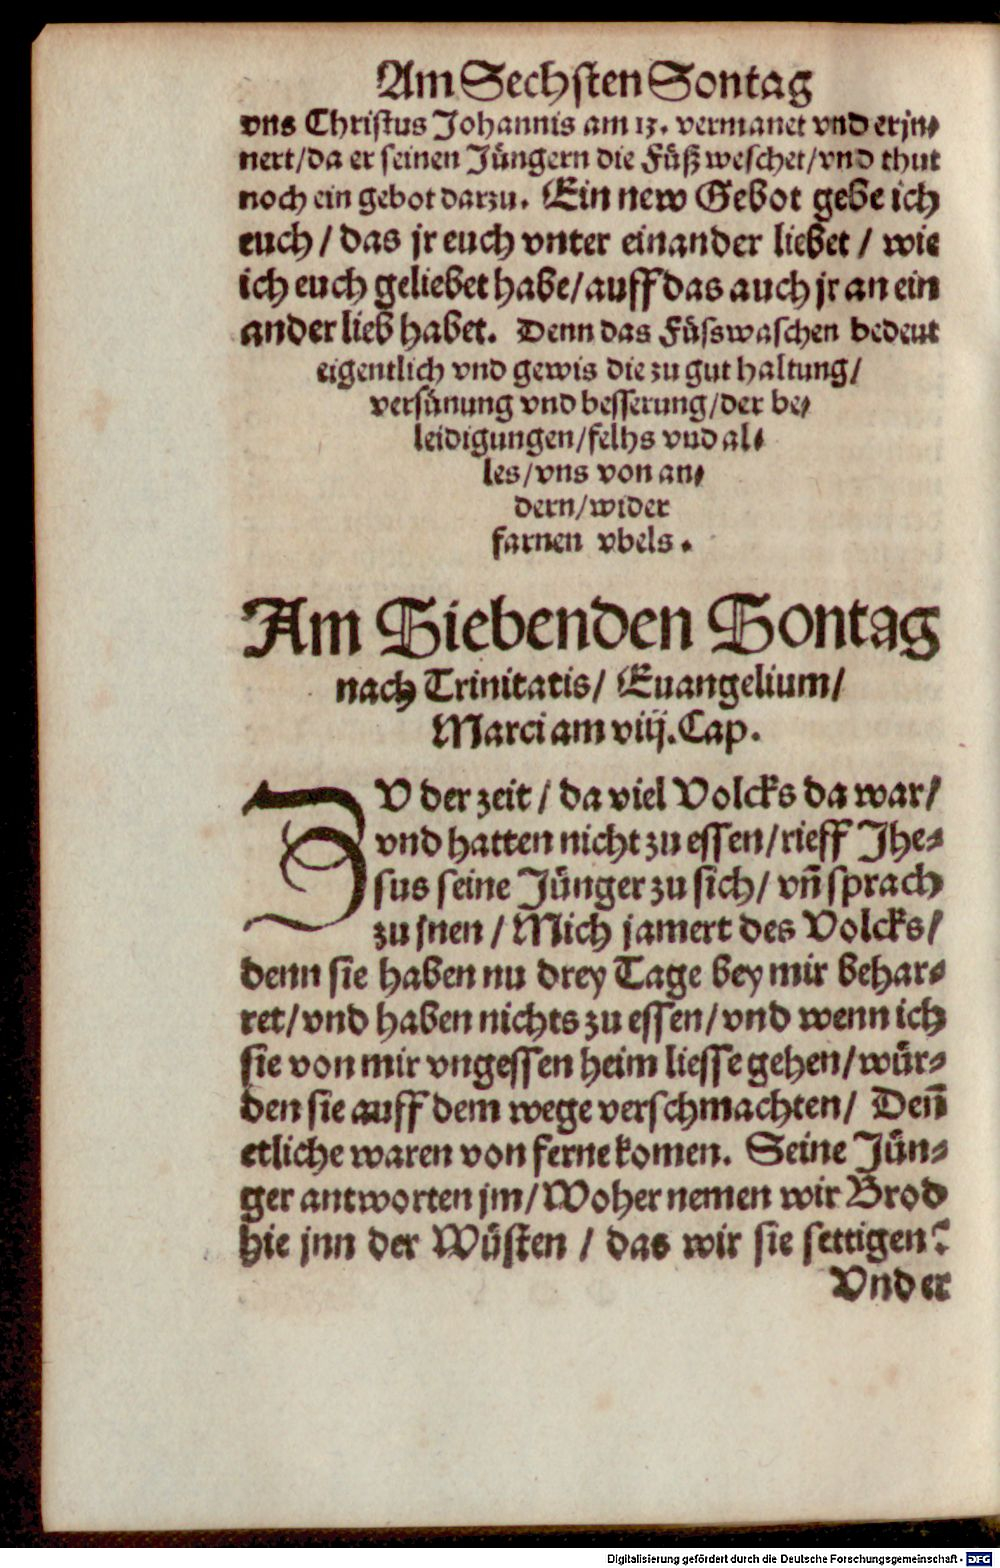 Am Sechsten Sontag
vns Christus Johannis am 13. vermanet vnd erjn⸗
nert/da er seinen Jüngern die Füß weschet/vnd thut
noch ein gebot darzu. Ein new Gebot gebe ich
euch / das jr euch vnter einander liebet / wie
ich euch geliebet habe/auff das auch jr an ein
ander lieb habet. Denn das Füsswaschen bedeut
eigentlich vnd gewis die zu gut haltung/
versünung vnd besserung/der be⸗
leidigungen/felhs vnd al⸗
les/vns von an⸗
dern/wider
farnen vbels.
Am Siebenden Sontag
nach Trinitatis/ Euangelium/
Marci am viij. Cap.
ZV der zeit / da viel Volcks da war/
vnd hatten nicht zu essen/rieff Jhe⸗
sus seine Jünger zu sich/ vn̄ sprach
zu jnen / Mich jamert des Volcks/
denn sie haben nu drey Tage bey mir behar⸗
ret/vnd haben nichts zu essen/vnd wenn ich
sie von mir vngessen heim liesse gehen/wür⸗
den sie auff dem wege verschmachten/ Den̄
etliche waren von ferne komen. Seine Jün⸗
ger antworten jm/Woher nemen wir Brod
hie jnn der Wüsten / das wir sie settigen?
Vnd er
Digitalisierung gefördert durch die Deutsche Forschungsgemeinschaft - DFG